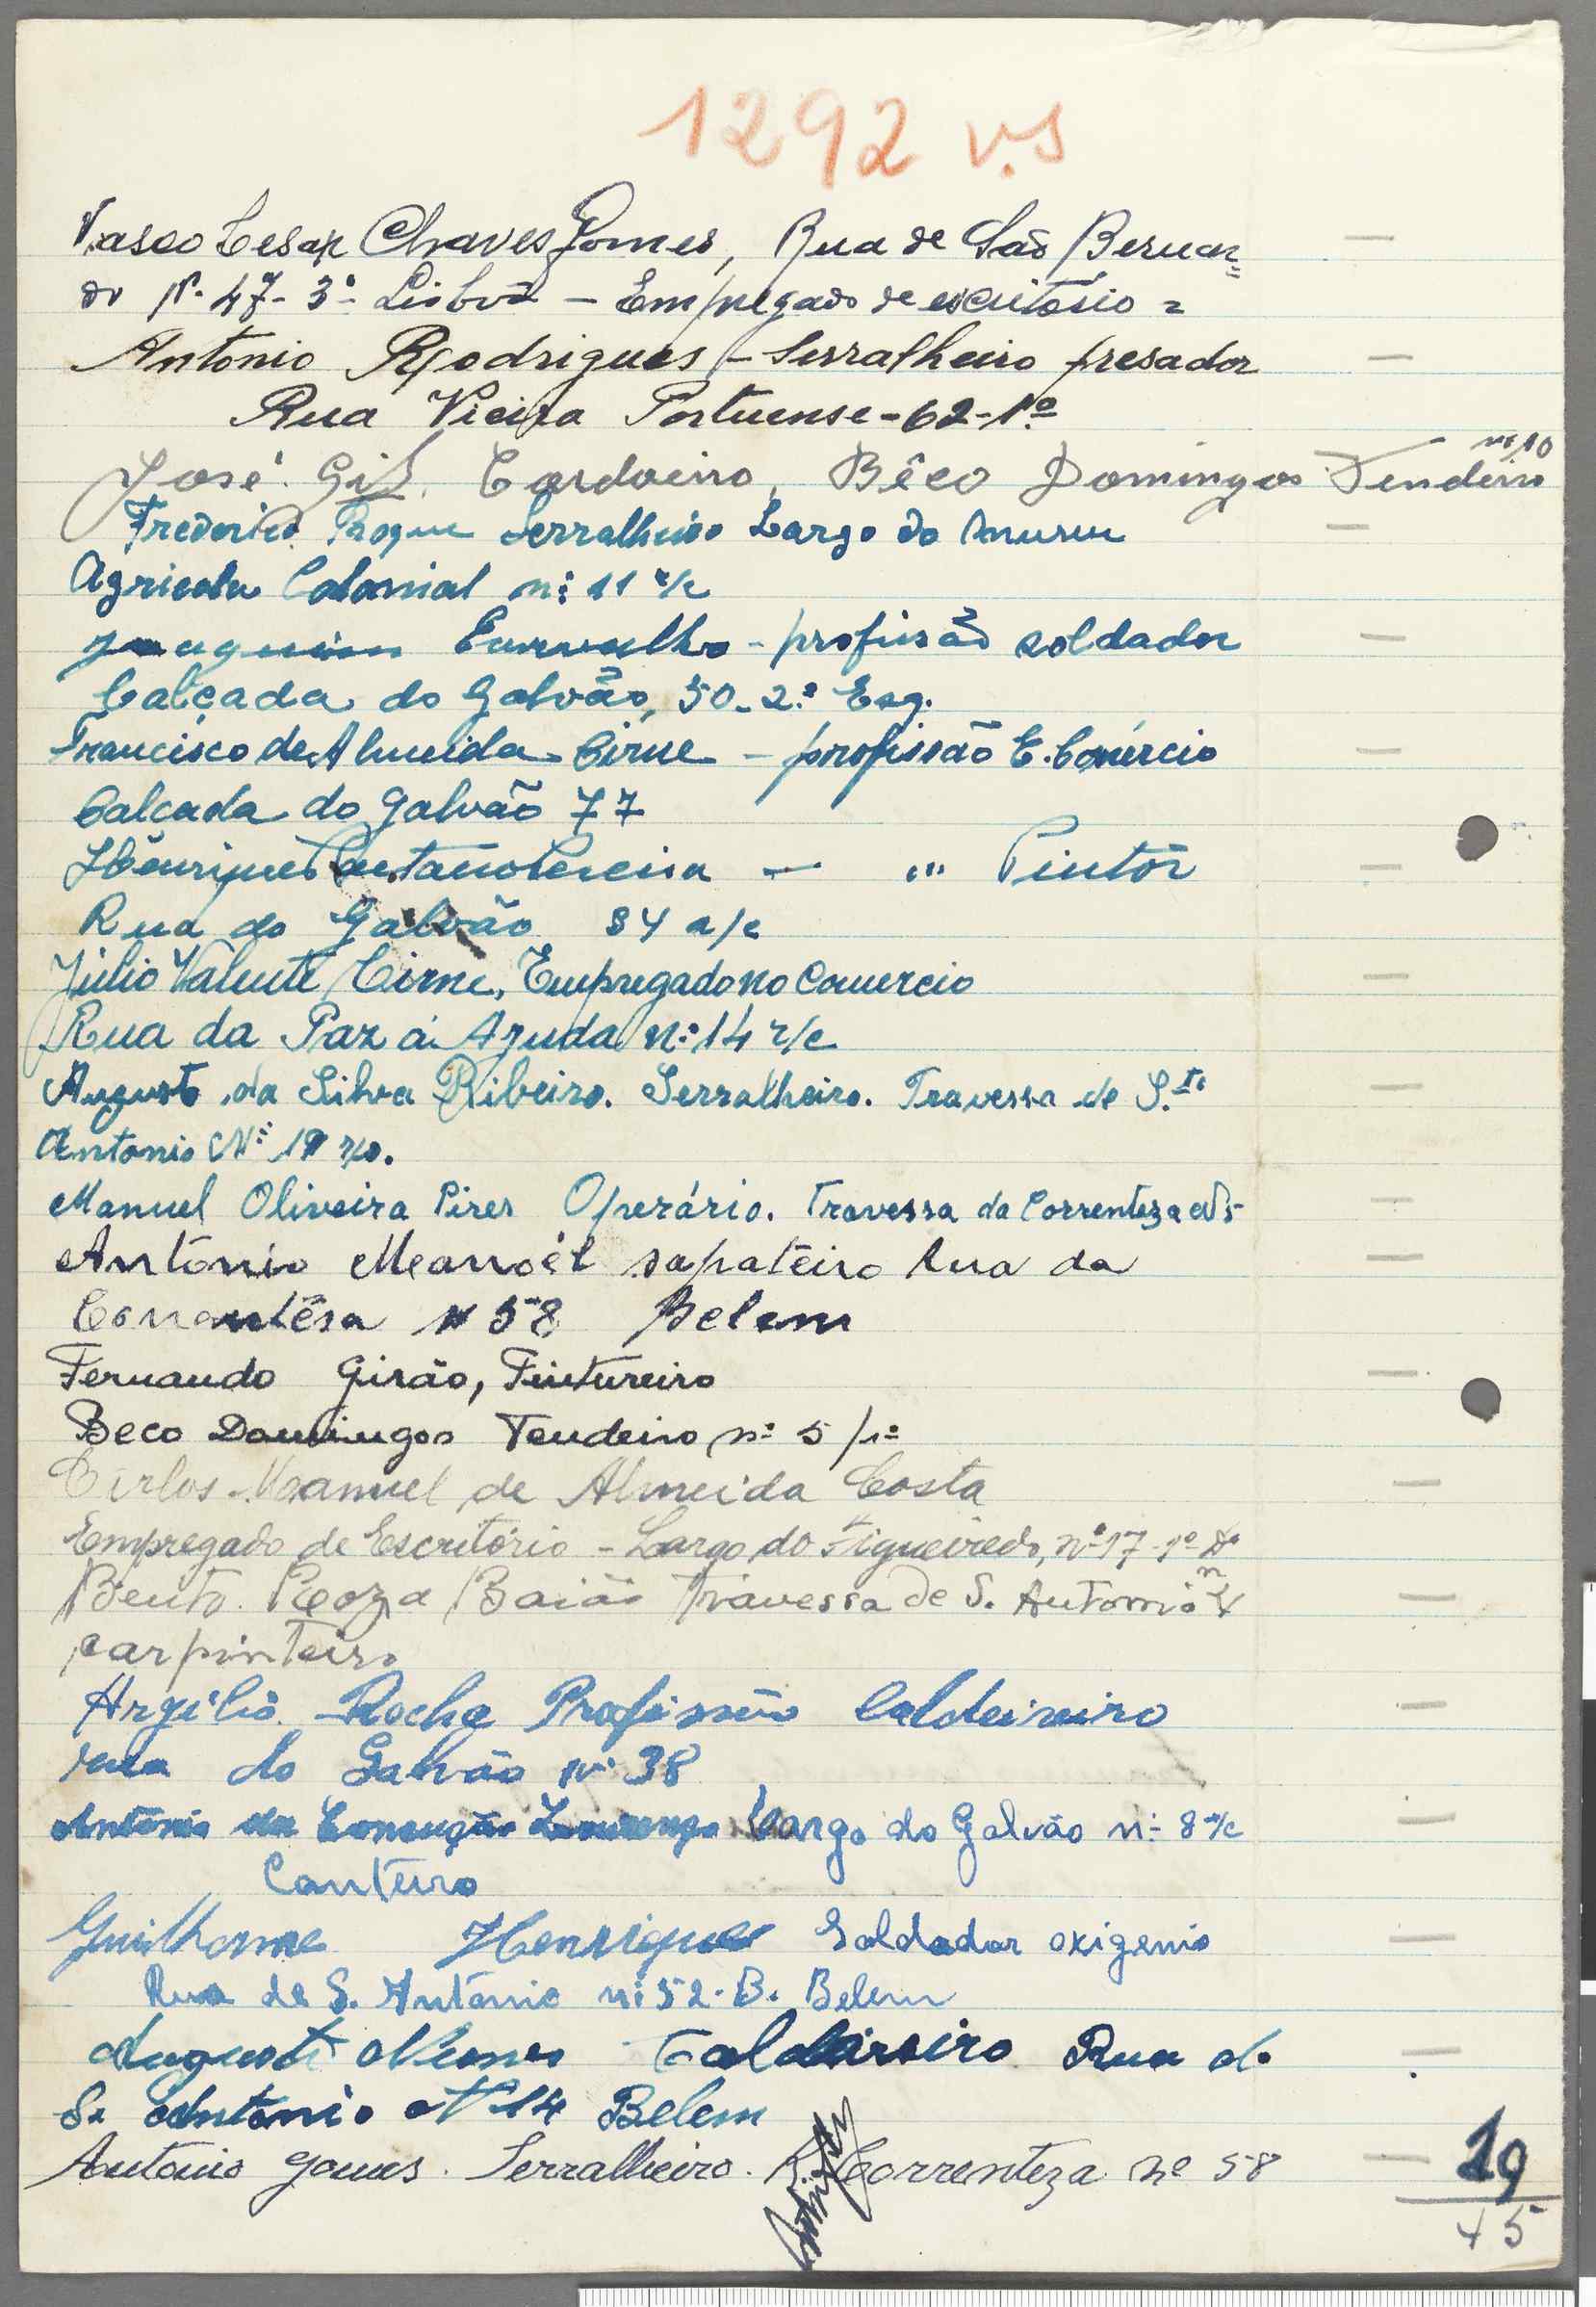 1292 v.s
Vasco Cesar Chaves Gomes, Rua de São Bernar=
do Nº. 47-3º- Lisboa - Empregado de escritório =
Antonio Rodrigues - Serralheiro fresador
Rua Vieira Portuense - 62-1º
José Gil, Cordoeiro, Bêco Domingos Tendeiro nº 10
Frederico Roque Serralheiro Largo do Museu
Agricola Colonial nº 11 r/c
Joaquim Carvalho - profisão soldador
Calçada do Galvão, 50-2.º Esq.
Francisco de Almeida Cirne - profissão E. Comércio
Calcada do Galvão 77
Henrique Caetano Pereira - " Pintôr
Rua do Galvão 84 r/c
Júlio Valente Cirne, Empregado no Comercio
Rua da Paz á Ajuda nº 14 r/c
Augusto da Silva Ribeiro. Serralheiro. Travessa de S.to
Antonio Nº 19 r/c.
Manuel Oliveira Pires Operário. Travessa da Correnteza Nº 5
António Manoél sapatêiro Rua da
Correntêsa Nº 58 Belem
Fernando Girão, Tintureiro
Beco Domingos Tendeiro nº 5 / 1º
Carlos Manuel de Almeida Costa
Empregado de Escritório - Largo do Figueiredo, nº 17-1º Dº
Bento Roza Baião Travessa de S. Antonio nº
carpinteiro
Argílio Rocha Profissão Caldeireiro
rua do Galvão nº 38
António da Conceição Lourenço Largo do Galvão nº 8 r/c
Canteiro
Guilherme Henriques Soldador oxigenio
Rua de S. António nº 52-B. Belem
Augusto Nunes Caldeireiro Rua de
Sº António Nº 14 Belem
António Gomes. Serralheiro. R. Correnteza nº 58
19
45